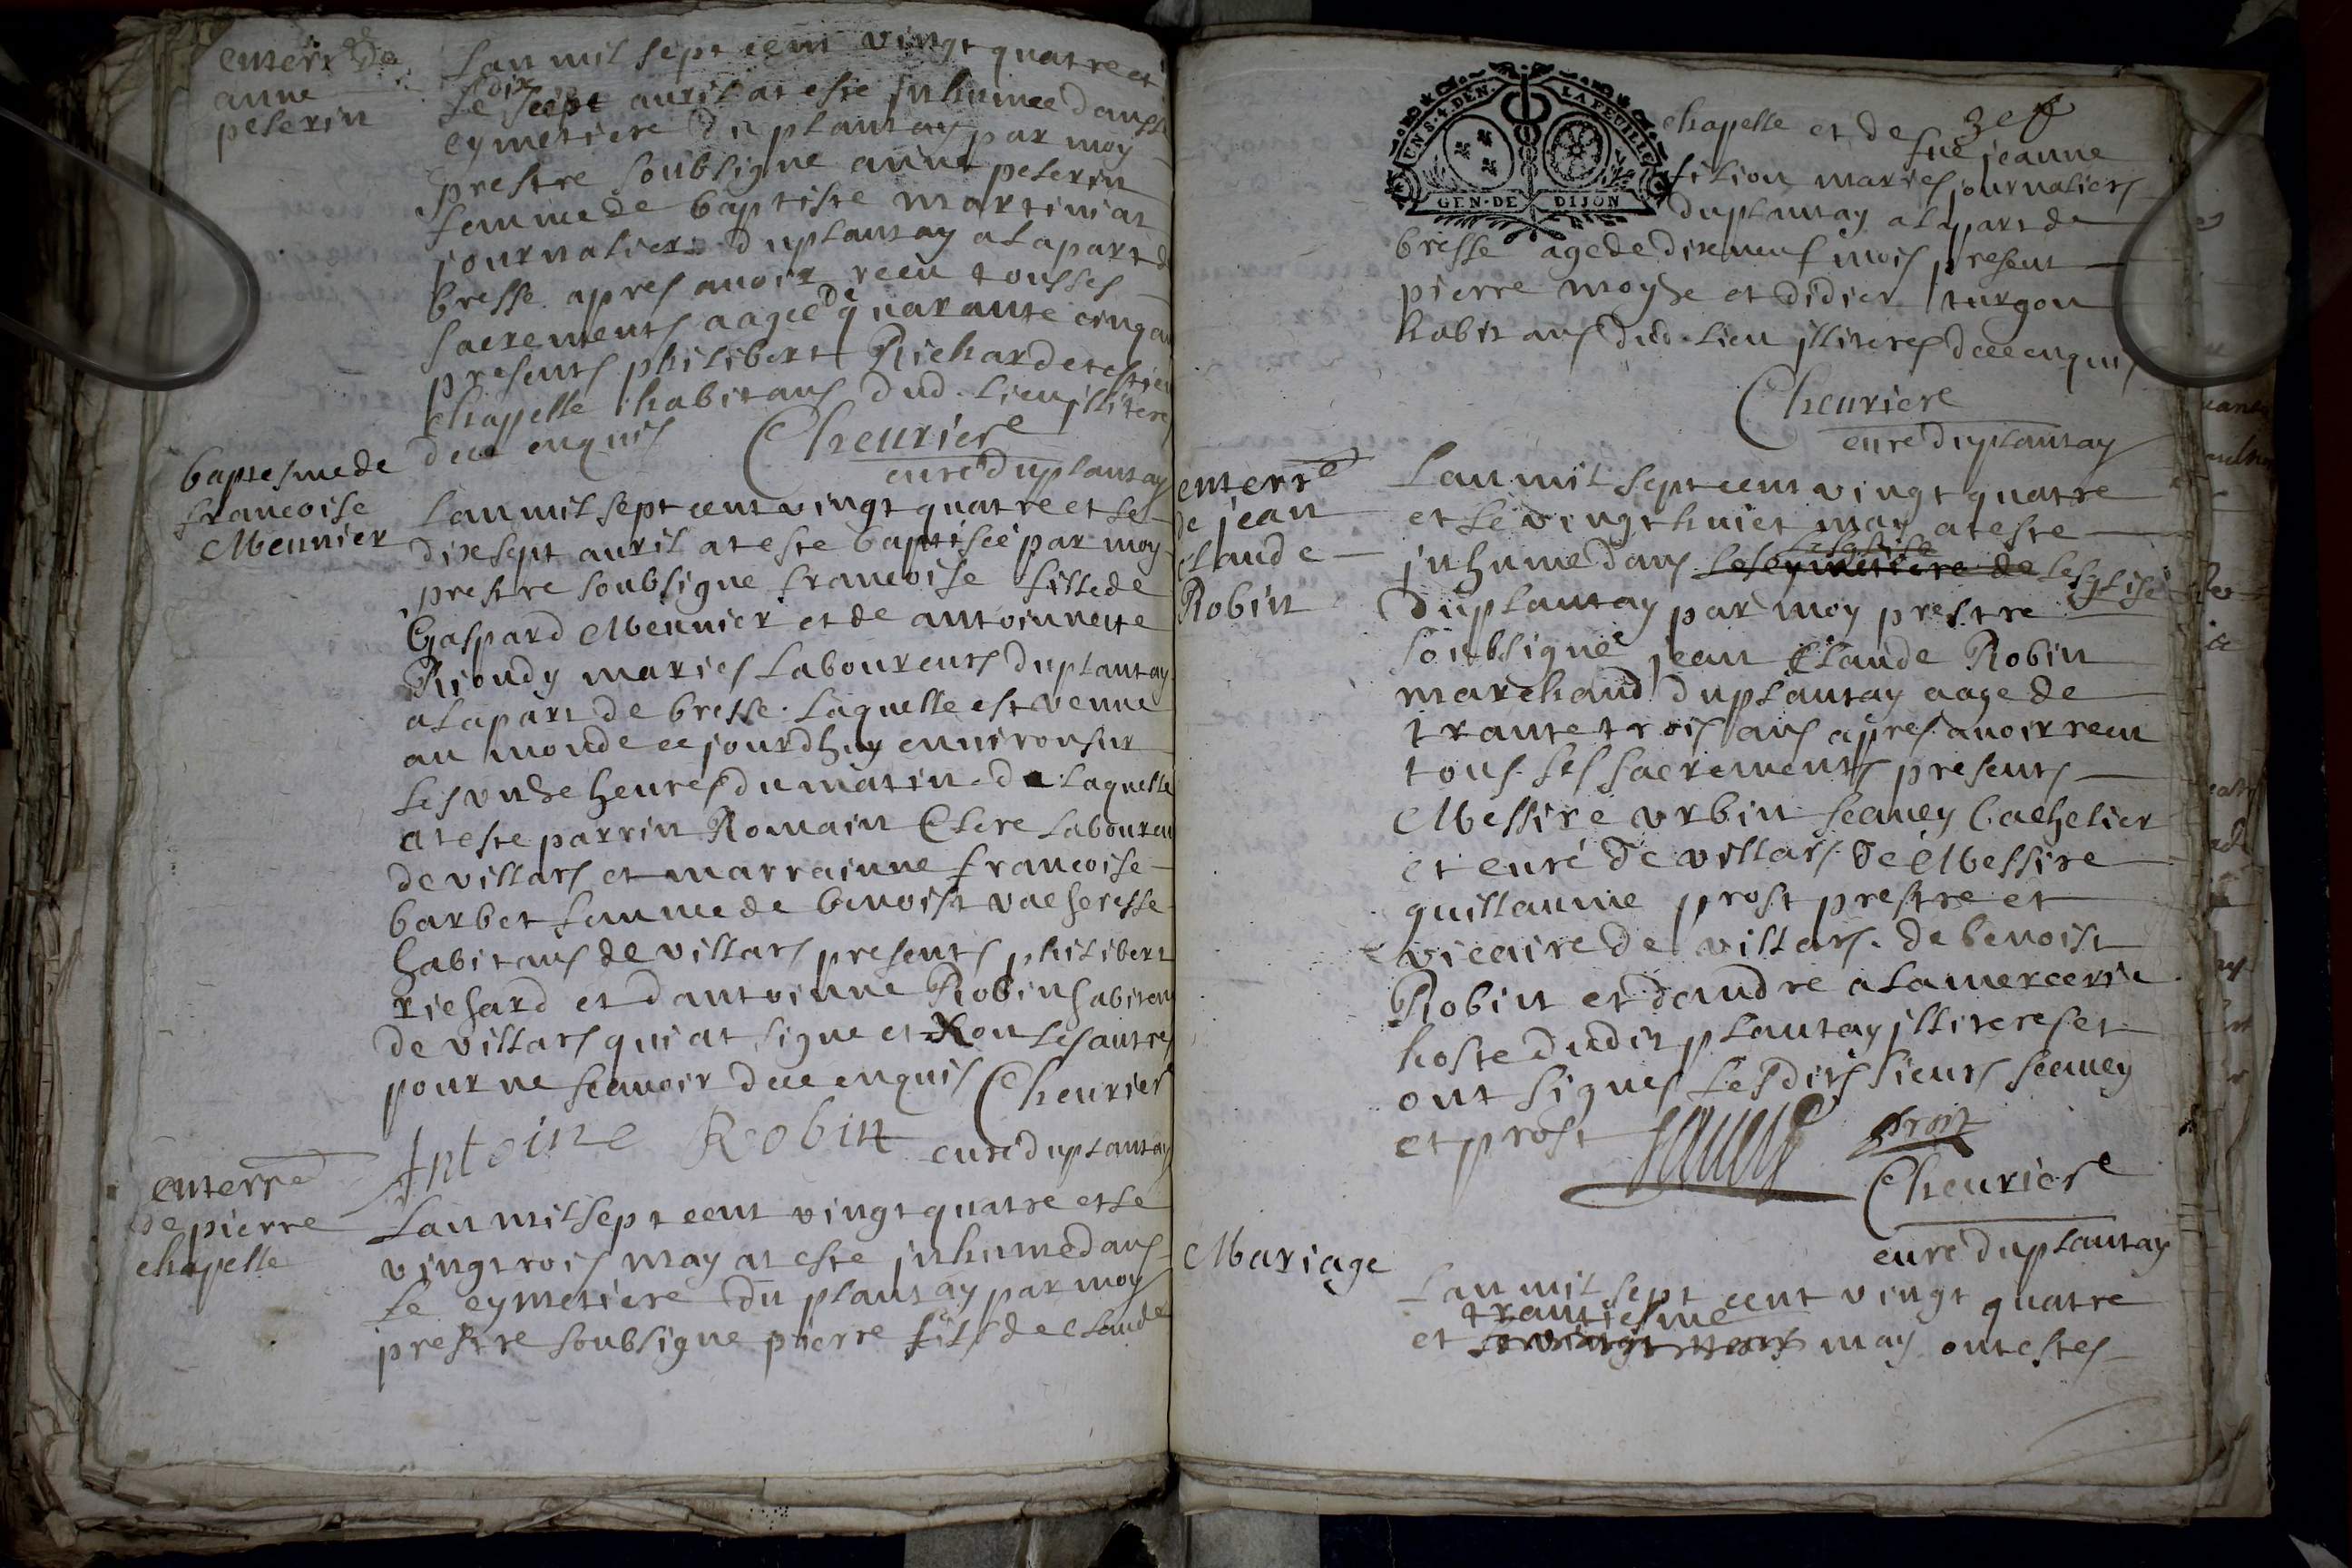 enterr de
anne
pelerin
Lan mil sept cent vingt quatre et
le dix sept auril at este inhumee dans le
cymetiere du plantay par moy
prestre soubsigne anne pelerin
femme de baptiste martiniat
journalier du plantay a la part de
bresse apres auoir receu tous ses
sacrements aagee de quarante cinq ans
presents philibert Richard et estiene
chapelle habitans dud. lieu illiteres
dece enquis Cheuriere
curé du plantay
baptesme de
francoise
Meunier
Lan mil sept cent vingt quatre et le
dixsept auril at este baptisée par moy
prestre soubsigne francoise fille de
Gaspard Meunier et de antoinnette
Rioudy maries laboureurs du plantay
a la part de bresse. laquelle est venue
au monde ce jourdhuy enuiron sur
les unze heures du matin. de laquelle
at este parrin Romain Clere laboureur
de villars et marrainne francoise
barbet femme de benoist vacheresse
habitans de villars presents philibert
richard et dantoinne Robin habitans
de villars qui at signe et non les autres
pour ne scauoir dece enquis Cheuriere
Antoine Robin curé du plantay
enterre
de pierre
chapelle
Lan mil sept cent vingt quatre et le
vingtrois may at este inhume dans
le cymetiere du plantay par moy
prestre soubsigne pierre fils de claude
UN S. 4. DEN. LA FEUILLE
GEN. DE DIJON
chapelle et de feue jeanne
filion maries journaliers
du plantay a la part de
bresse age de dixneuf mois present
pierre moyse et didier turgon
habitans dud. lieu illiteres dece enquis
Cheuriere
curé du plantay
enterré
de jean
claude
Robin
Lan mil sept cent vingt quatre
et le vingt huict may at este
inhume dans le cymetiere de lesglise
du plantay par moy prestre
soubsigné jean Claude Robin
marchand du plantay aage de
trante trois ans apres auoir receu
tous ses sacrements presents
Messire urbin scauey bachelier
et curé de villars de Messire
guillaume prost prestre et
vicaire de villars. de benoist
Robin et dandre alamercerie
hoste dudit plantay illiteres et
ont signes lesdits sieurs scauey
et prost scauey prost
Cheuriere
curé du plantay
Mariage
Lan mil sept cent vingt quatre
trantiesme
et may ont estes